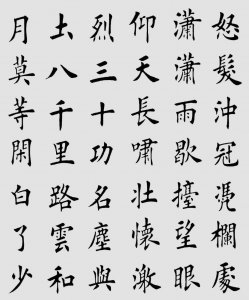 怒髮沖冠凴欄處
瀟瀟雨歇擡望眼
仰天長嘯壯懷激
烈三十功名塵與
土八千里路雲和
月莫等閑白了少